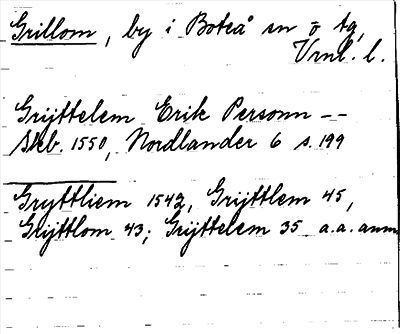 Grillom, by i Boteå sn o tg,
Vrnl. l.
Grijttelem Erik Personn --
Skb. 1550, Nordlander 6 s. 199
Gryttliem 1542, Grijttlem 45,
Grijttlom 43; Grijttelem 35 a.a. anm